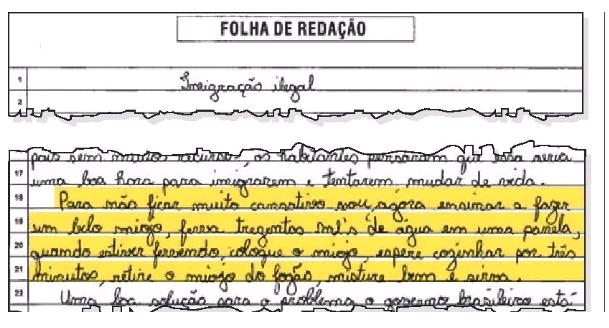 FOLHA DE REDAÇÃO
1 Imigração ilegal
2
pois sem muito recursos, os habitantes pensaram que essa seria
17 uma boa hora para imigrarem e tentarem mudar de vida.
18 Para não ficar muito cansativo, vou agora ensinar a fazer
19 um belo miojo, ferva trezentos ml's de água em uma panela,
20 quando estiver fervendo, coloque o miojo, espere cozinhar por três
21 minutos, retire o miojo do fogão, misture bem e sirva.
22 Uma boa solução para o problema o governo brasileiro está